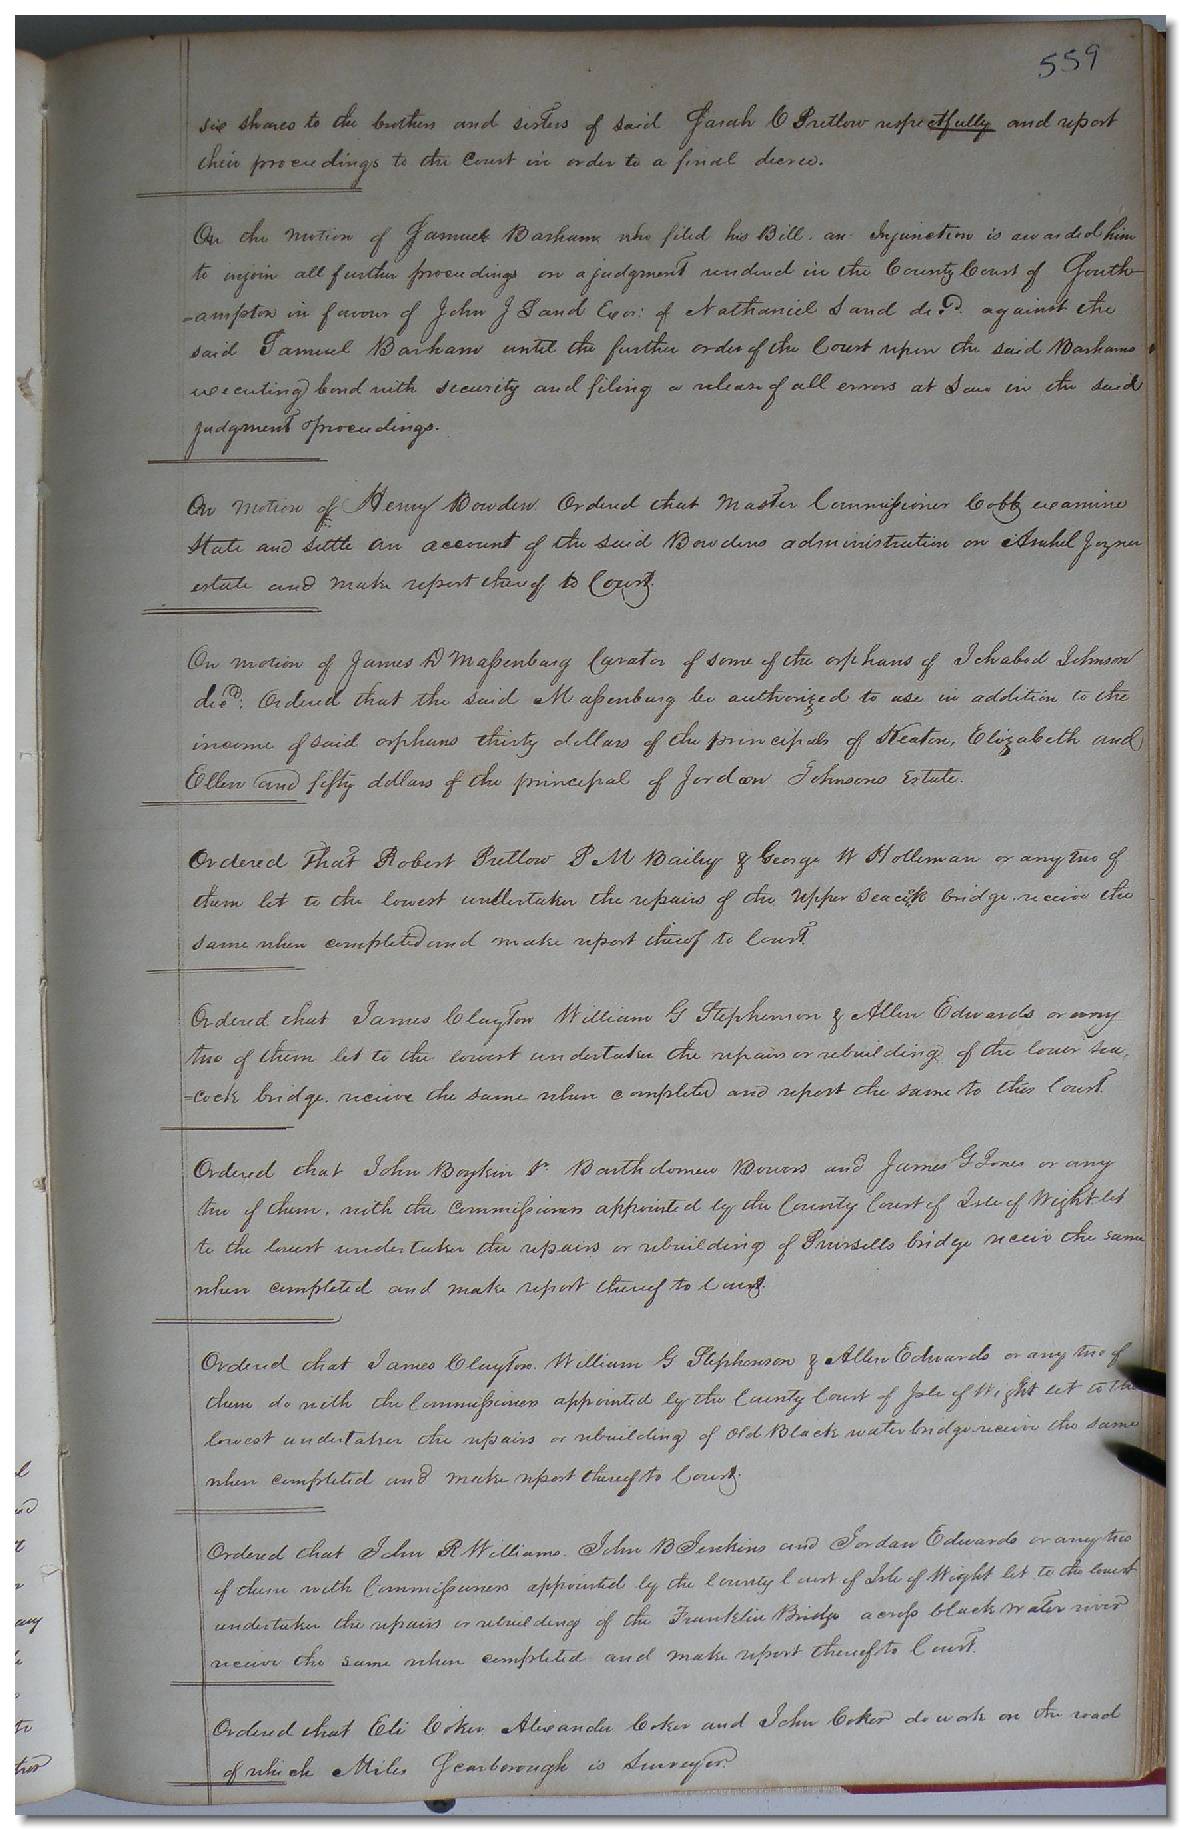 559
six shares to the brothers and sisters of said Sarah C Pretlow respectfully and report
their proceedings to the Court in order to a final decree.
On the motion of Samuel Barham who filed his Bill. an Injunction is awarded him
to enjoin all further proceedings on a judgment rendered in the County Court of South-
-ampton in favour of John J Land Exor: of Nathaniel Land decd. against the
said Samuel Barham until the further order of the Court upon the said Barhams
executing bond with security and filing a release of all errors at Law in the said
judgment & proceedings.
On motion of Henry Bowden Ordered that Master Commissioner Cobb examine
State and settle an account of the said Bowdens administration on Joyner
estate and make report thereof to Court.
On motion of James D Massenburg Curator of some of the orphans of Ichabod Johnson
decd. Ordered that the said Massenburg be authorized to use in addition to the
income of said orphans thirty dollars of the principals of Keaton, Elizabeth and
Ellen and fifty dollars of the principal of Jordan Johnsons Estate.
Ordered That Robert Pretlow P M Bailey & George W Holleman or any two of
them let to the lowest undertaker the repairs of the Upper Seacock bridge. receive the
same when completed and make report thereof to Court
Ordered that James Clayton William G Stephenson & Allen Edwards or any
two of them let to the lowest undertaker the repairs or rebuilding of the lower Sea,
=cock bridge. receive the same when completed and report the same to this Court.
Ordered that John Boykin Jr. Bartholomew Bowers and James G Jones or any
two of them. with the commissioners appointed by the County Court of Isle of Wight let
to the lowest undertaker the repairs or rebuilding of Pursells bridge receive the same
when completed and make report thereof to Court.
Ordered that James Clayton. William G Stephenson & Allen Edwards or any two of
them do with the Commissioners appointed by the County Court of Isle of Wight let to the
lowest undertaker the repairs or rebuilding of Old Black water bridge receive the same
when completed and make report thereof to Court.
Ordered that John R Williams. John B Jenkins and Jordan Edwards or any two
of them with Commissioners appointed by the County Court of Isle of Wight let to the lowest
undertaker the repairs or rebuilding of the Franklin Bridge across black water river
receive the same when completed and make report thereof to Court.
Ordered that Eli Coker. Alexander Coker and John Coker do work on the road
of which Miles Scarborough is Surveyor.